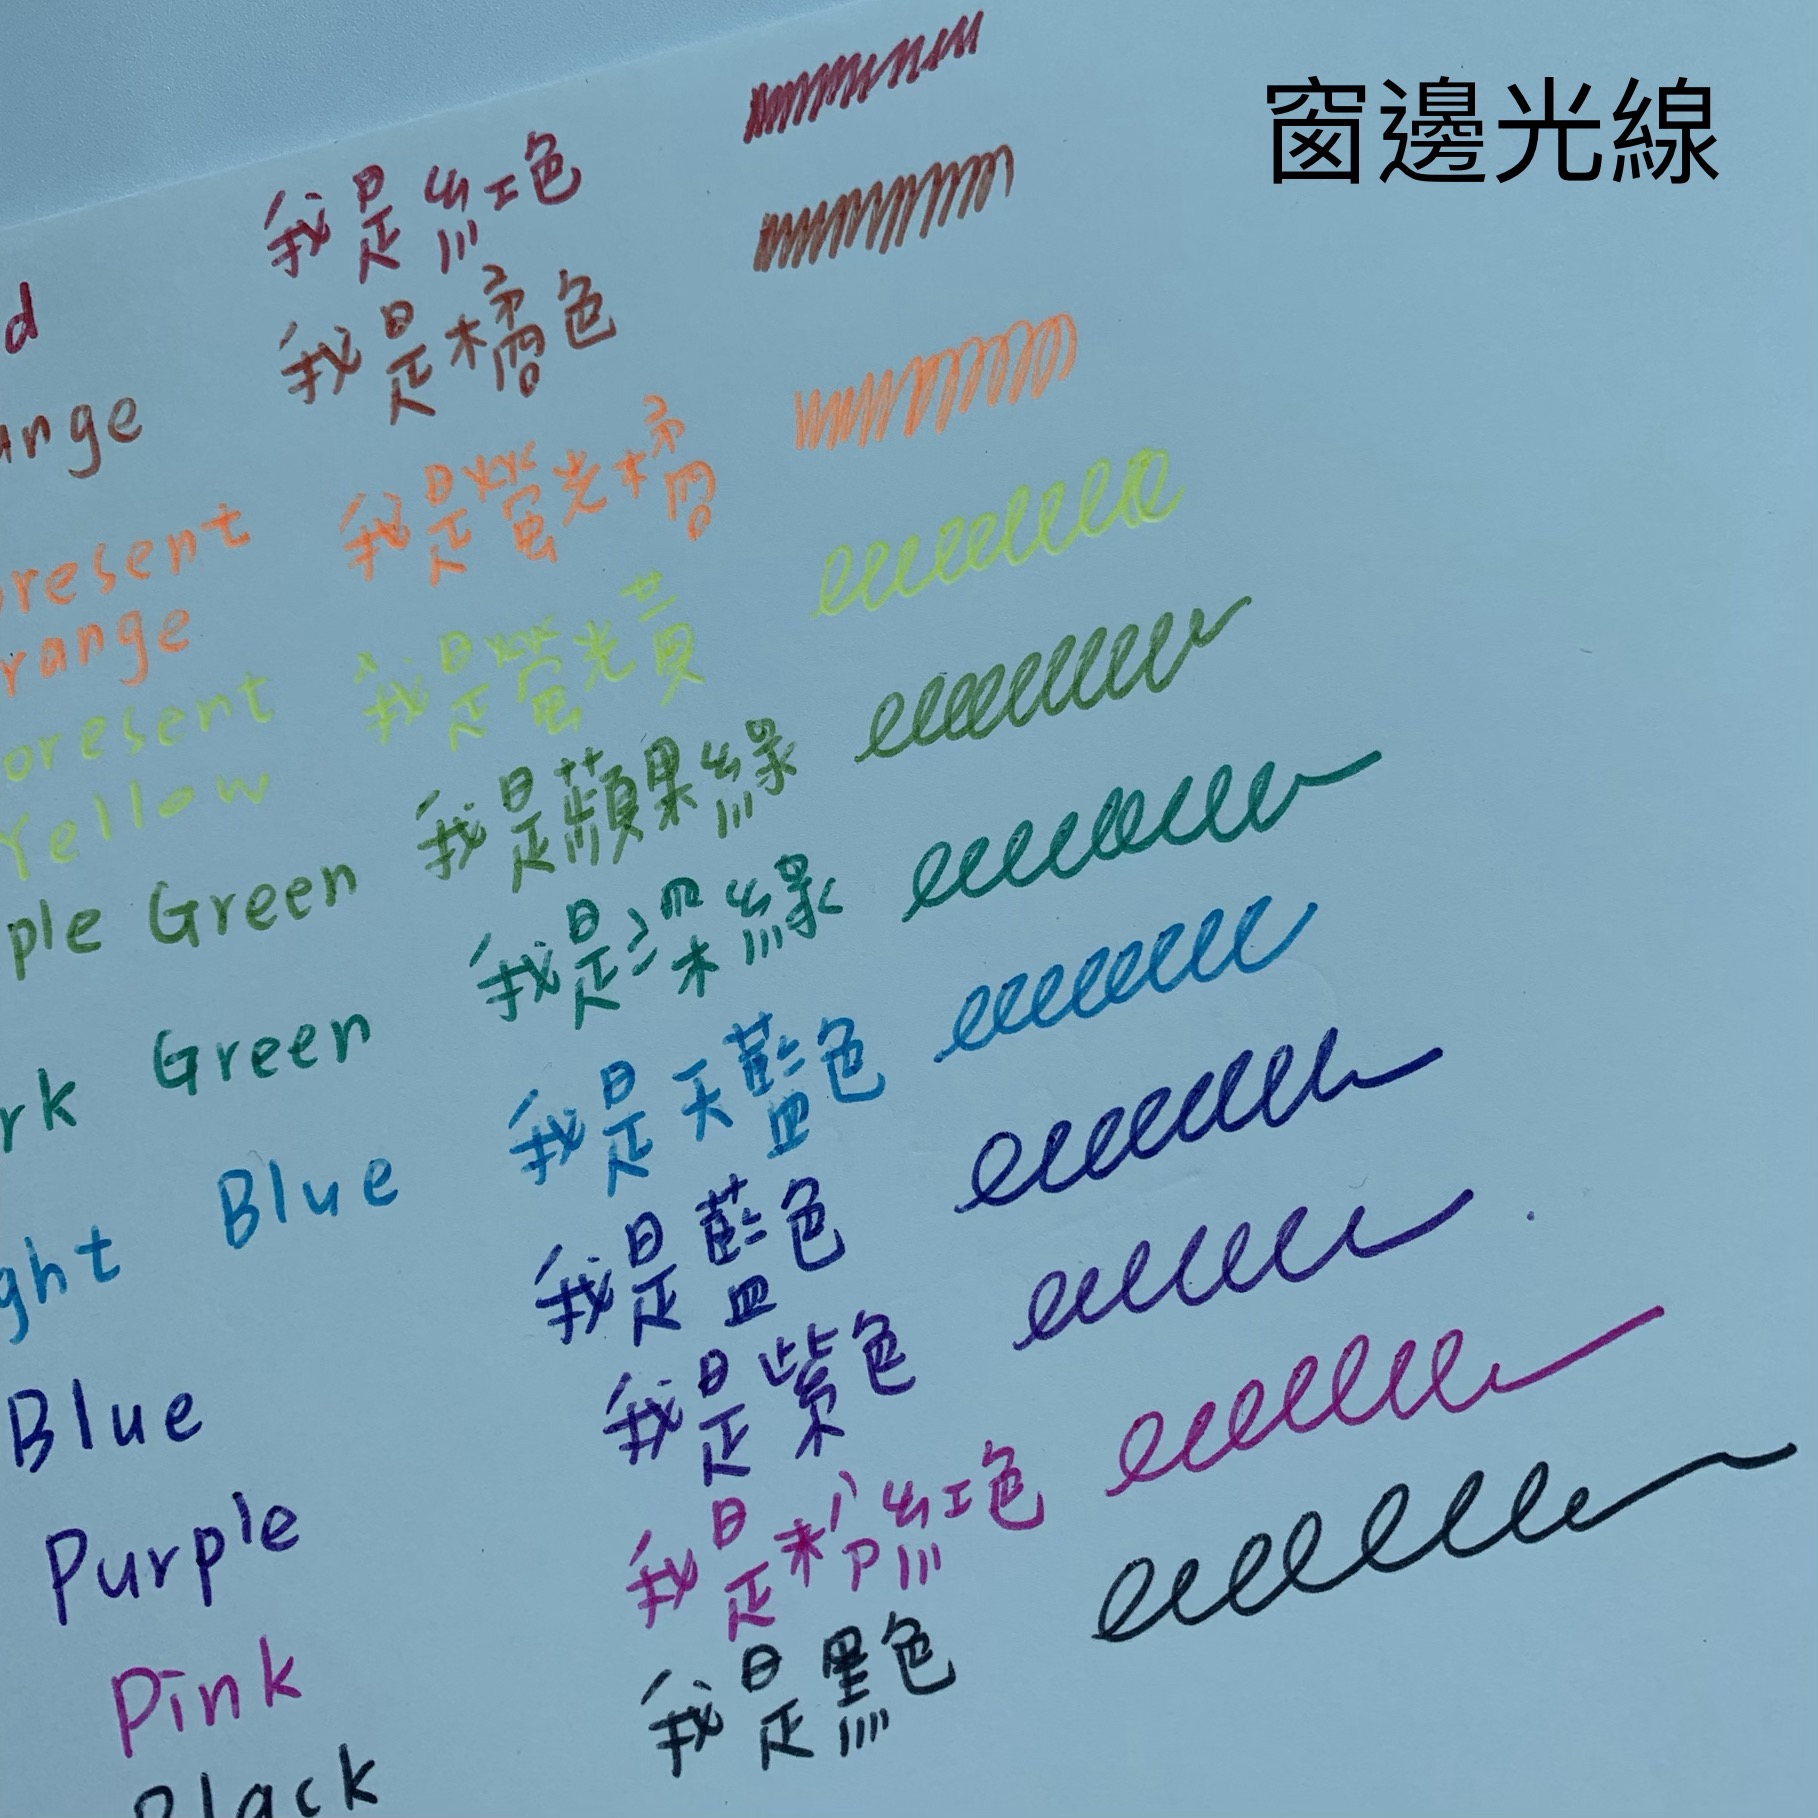 窗邊光線
d 我是紅色
ange 我是橘色
resent 我是螢光橘
range
resent 我是螢光黃
Yellow
ple Green 我是蘋果綠
rk Green 我是深綠
ght Blue 我是天藍色
Blue 我是藍色
Purple 我是紫色
Pink 我是粉紅色
Black 我是黑色